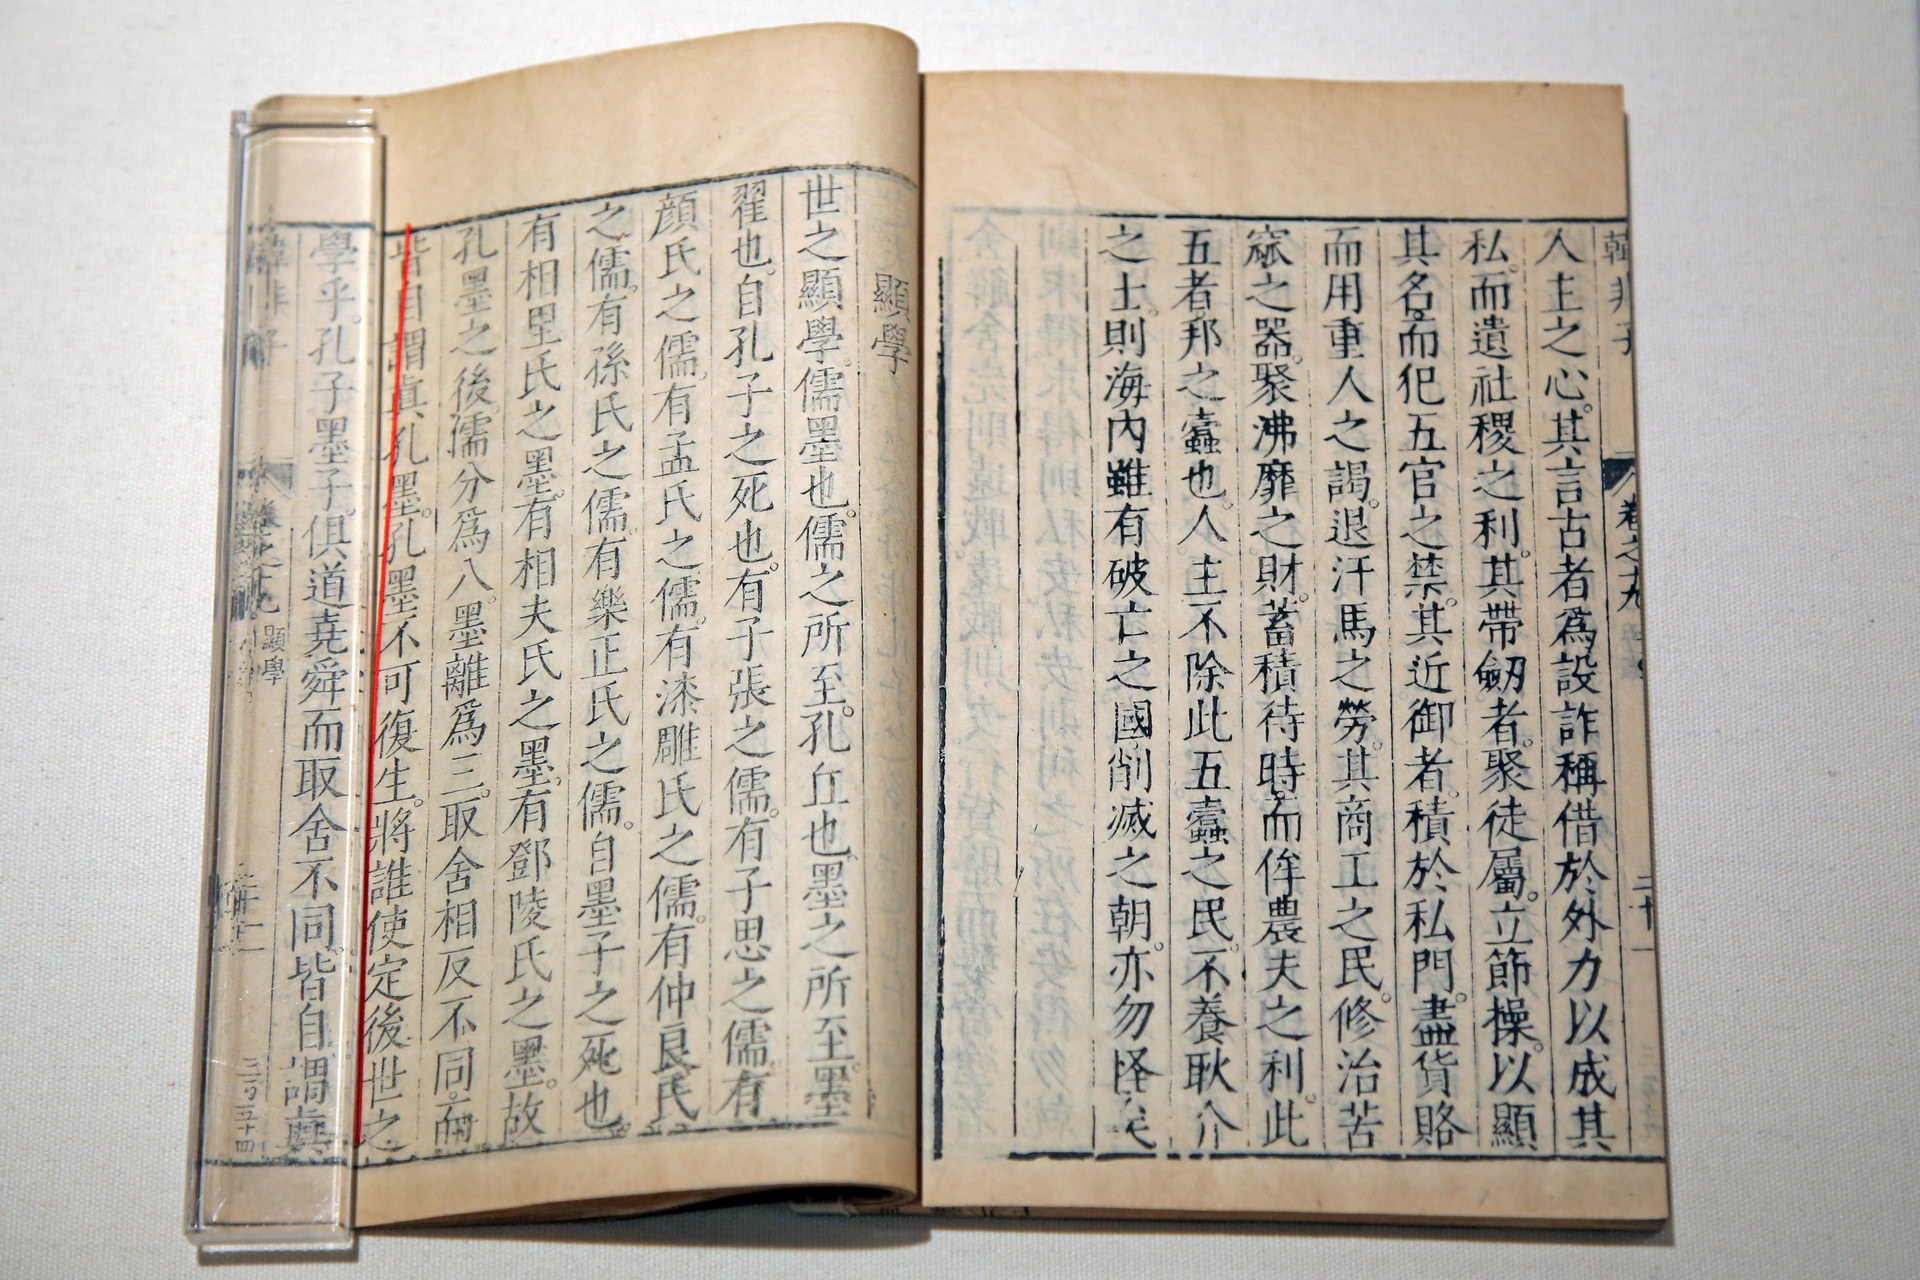 韓非子 卷之十九 二十一
人主之心。其言古者爲設詐稱借於外力以成其
私。而遺社稷之利。其帶劒者。聚徒屬。立節操。以顯
其名。而犯五官之禁。其近御者。積於私門。盡貨賂
而用重人之謁。退汗馬之勞。其商工之民。修治苦
窳之器。聚沸靡之財。蓄積待時。而侔農夫之利。此
五者。邦之蠹也。人主不除此五蠹之民。不養耿介
之士。則海內雖有破亡之國。削滅之朝。亦勿怪矣
顯學
世之顯學。儒墨也。儒之所至。孔丘也。墨之所至。墨
翟也。自孔子之死也。有子張之儒。有子思之儒。有
顏氏之儒。有孟氏之儒。有漆雕氏之儒。有仲良氏
之儒。有孫氏之儒。有樂正氏之儒。自墨子之死也
有相里氏之墨。有相夫氏之墨。有鄧陵氏之墨。故
孔墨之後。儒分爲八。墨離爲三。取舍相反不同。而
皆自謂眞孔墨。孔墨不可復生。將誰使定後世之
學乎。孔子墨子。俱道堯舜而取舍不同。皆自謂眞
韓非子 卷之十九 顯學